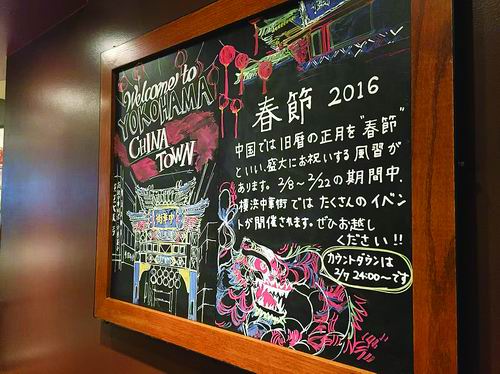 Welcome to
YOKOHAMA
CHINA
TOWN
中華街
春節 2016
中国では旧暦の正月を"春節"
といい、盛大にお祝いする風習が
あります。2/8～2/22の期間中、
横浜中華街ではたくさんのイベン
トが開催されます。ぜひお越し
ください!!
カウントダウンは
2/7 24:00～です